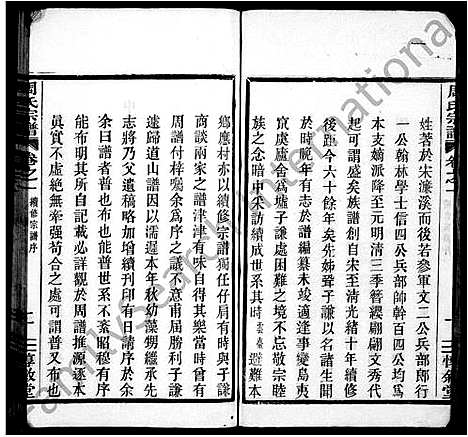 周氏宗譜 卷之一
姓著於宋濂溪而後若參軍文二公兵部郎行
一公翰林學士信四公兵部帥幹百四公均爲
本支嫡派降至元明清三季簪纓翩翩文秀代
起可謂盛矣族譜創自宋至清光緒十年續修
後距今六十餘年矣先姊丈子謙以名諸生閒
於時晚年有志於譜編纂未竣適逢事變島夷
宼虞廬舍爲墟子謙處困難之境不忘敬宗睦
族之念暗中采訪續成世系其時雲臺避難本
惇敘堂
周氏宗譜 卷之一 續修宗譜序
鄉應村亦以續修宗譜獨任仔肩有時與子謙
商談兩家之譜津津有味自得其樂當時曾以
周譜付梓囑余爲序之議不意甫屆勝利子謙
遂歸道山譜因以濡遲本年秋幼藻甥繼承先
志將乃父遺稿略加增續刊印有日請序於余
余曰譜者普也布也普則世系不紊昭穆有序
能布明其所自記載必詳觀於周譜推源逐本
眞實不虛絕無牽强苟合之處可謂普又布也
二
惇敘堂
FamilySearch International